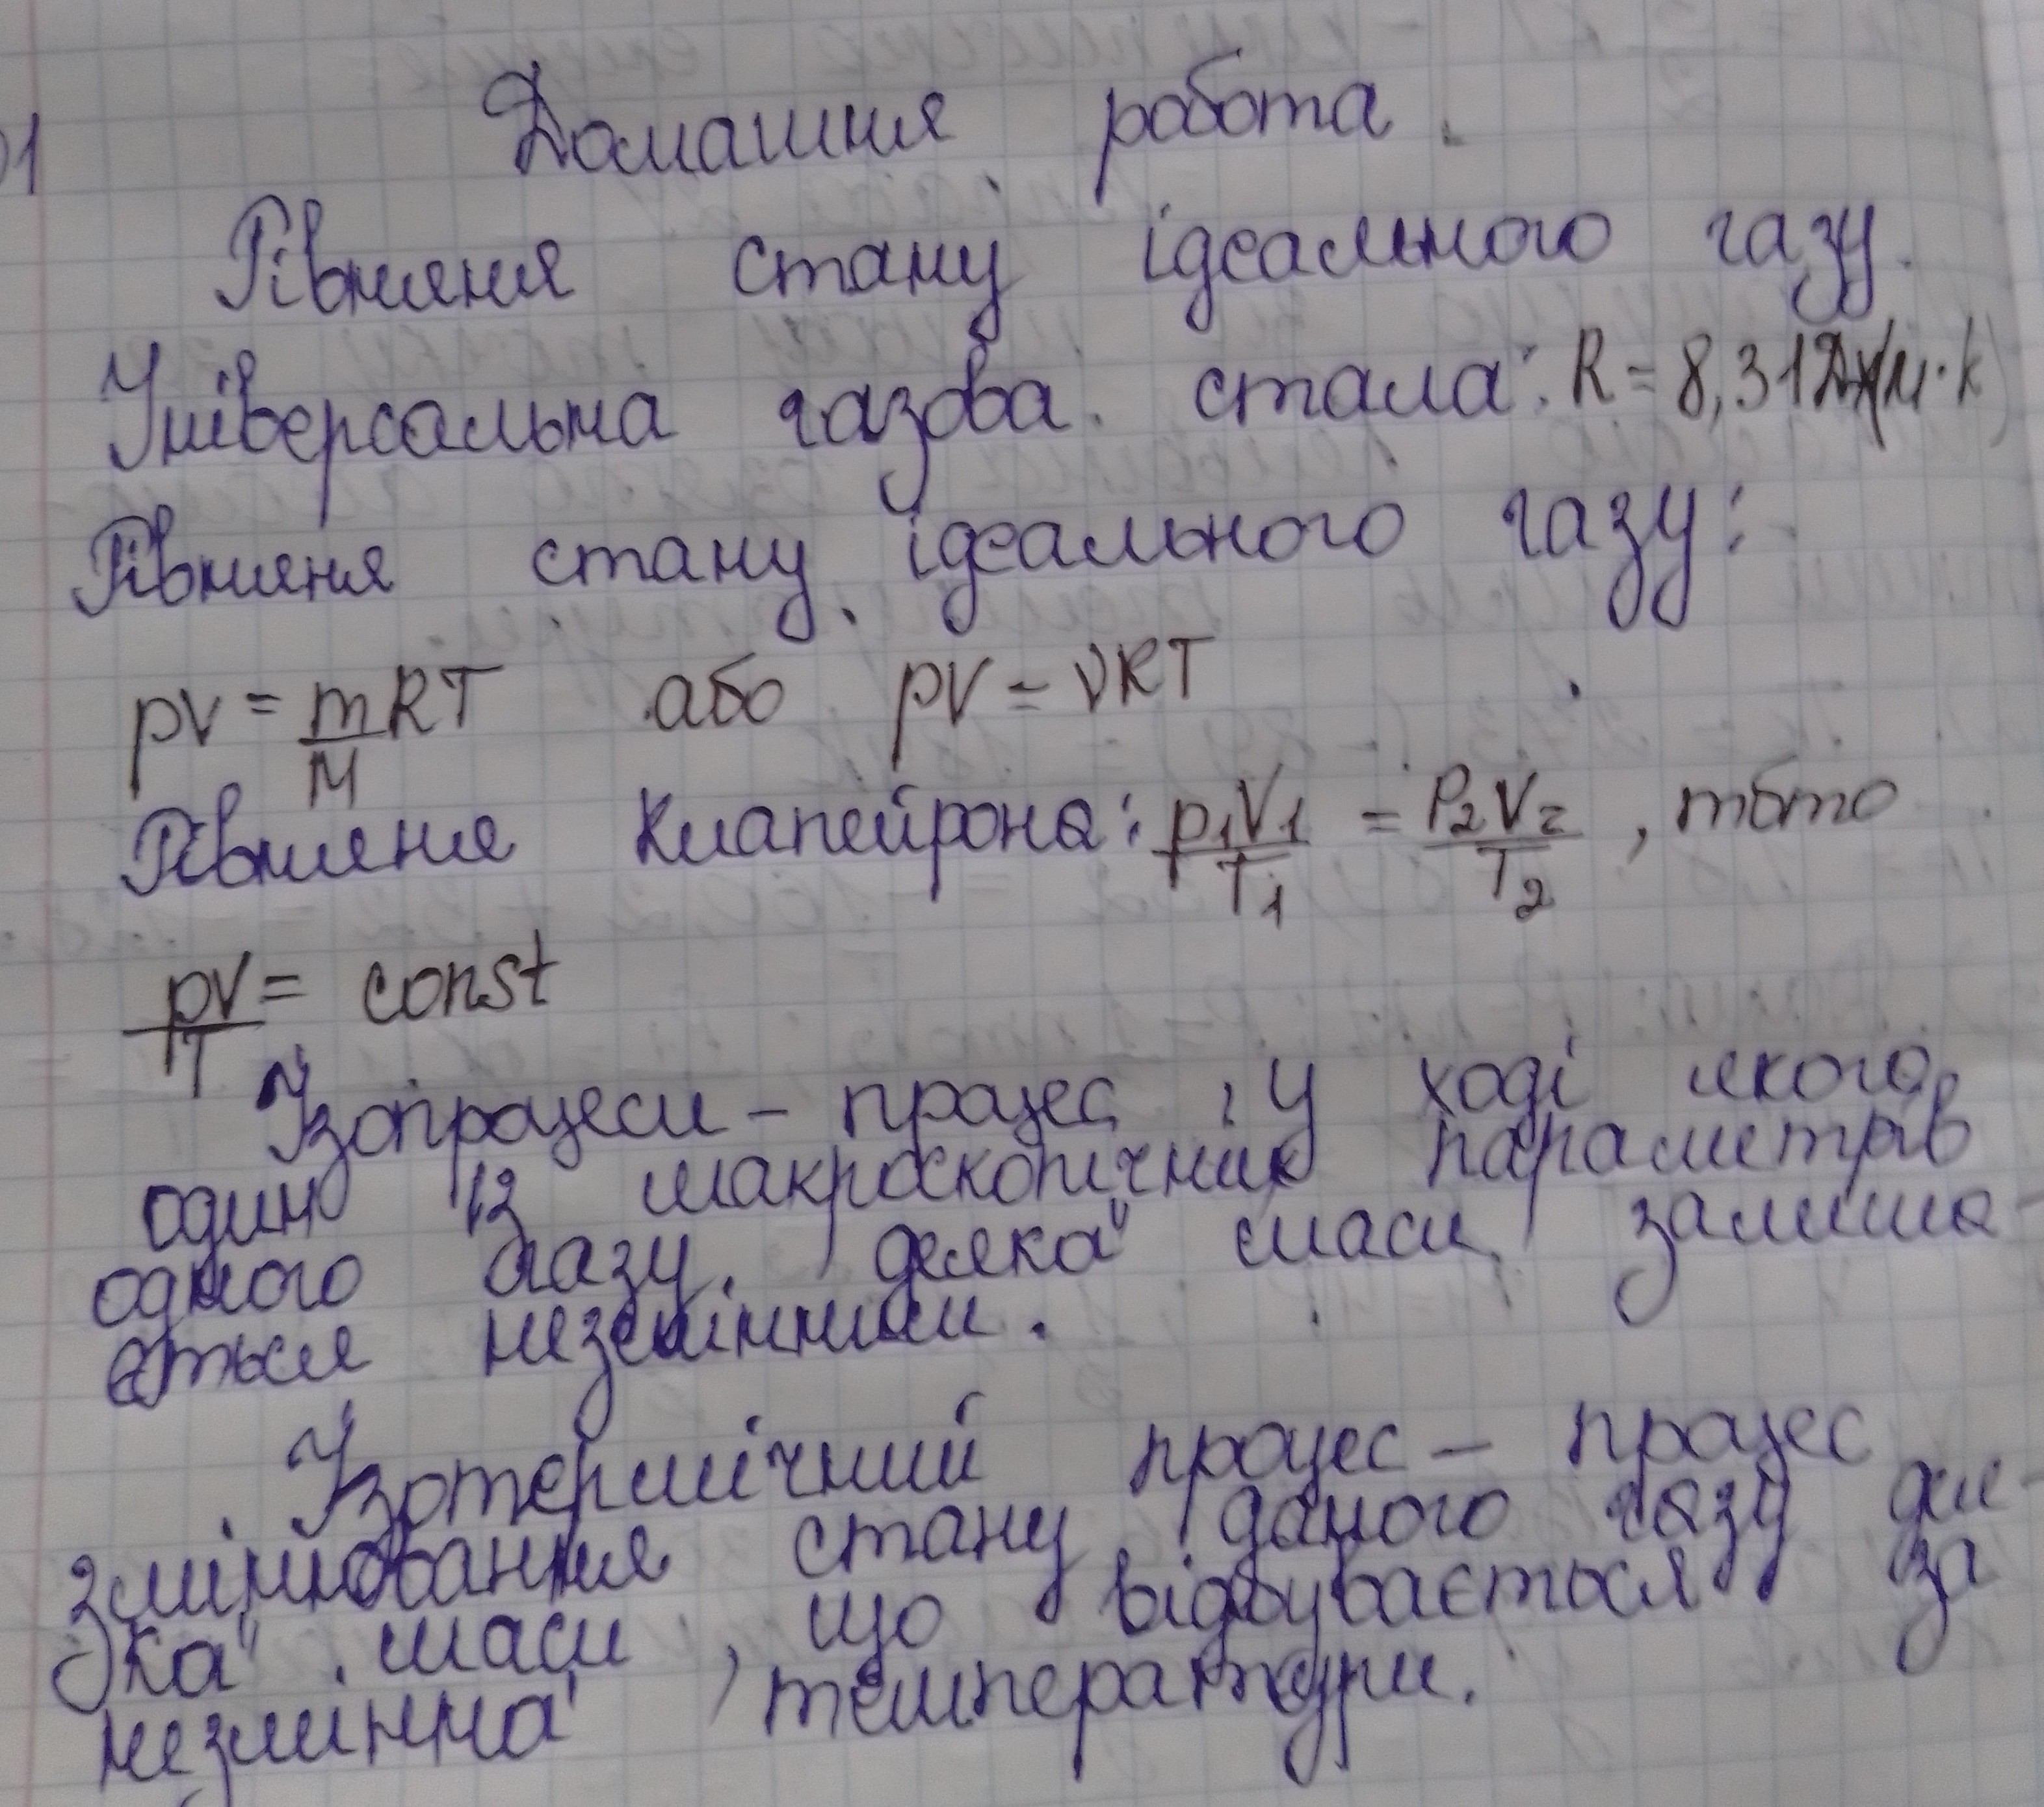 01
Домашня робота.
Рівняня стану ідеального газу.
Універсальна газова стала: R = 8,31Дж/(м·k)
Рівняня стану ідеального газу:
pV = m/M RT або pV = νRT
Рівняня Клапейрона: p₁V₁/T₁ = P₂V₂/T₂, тбто
pV/T = const
Ізопроцеси – процес, у ході якого
один із макроскопічних параметрів
одного газу, деяка маси залиша-
ється незмінним.
Ізотермічний процес – процес
змінювання стану даного газу дея-
ка маси, що відбувається за
незмінна температури.